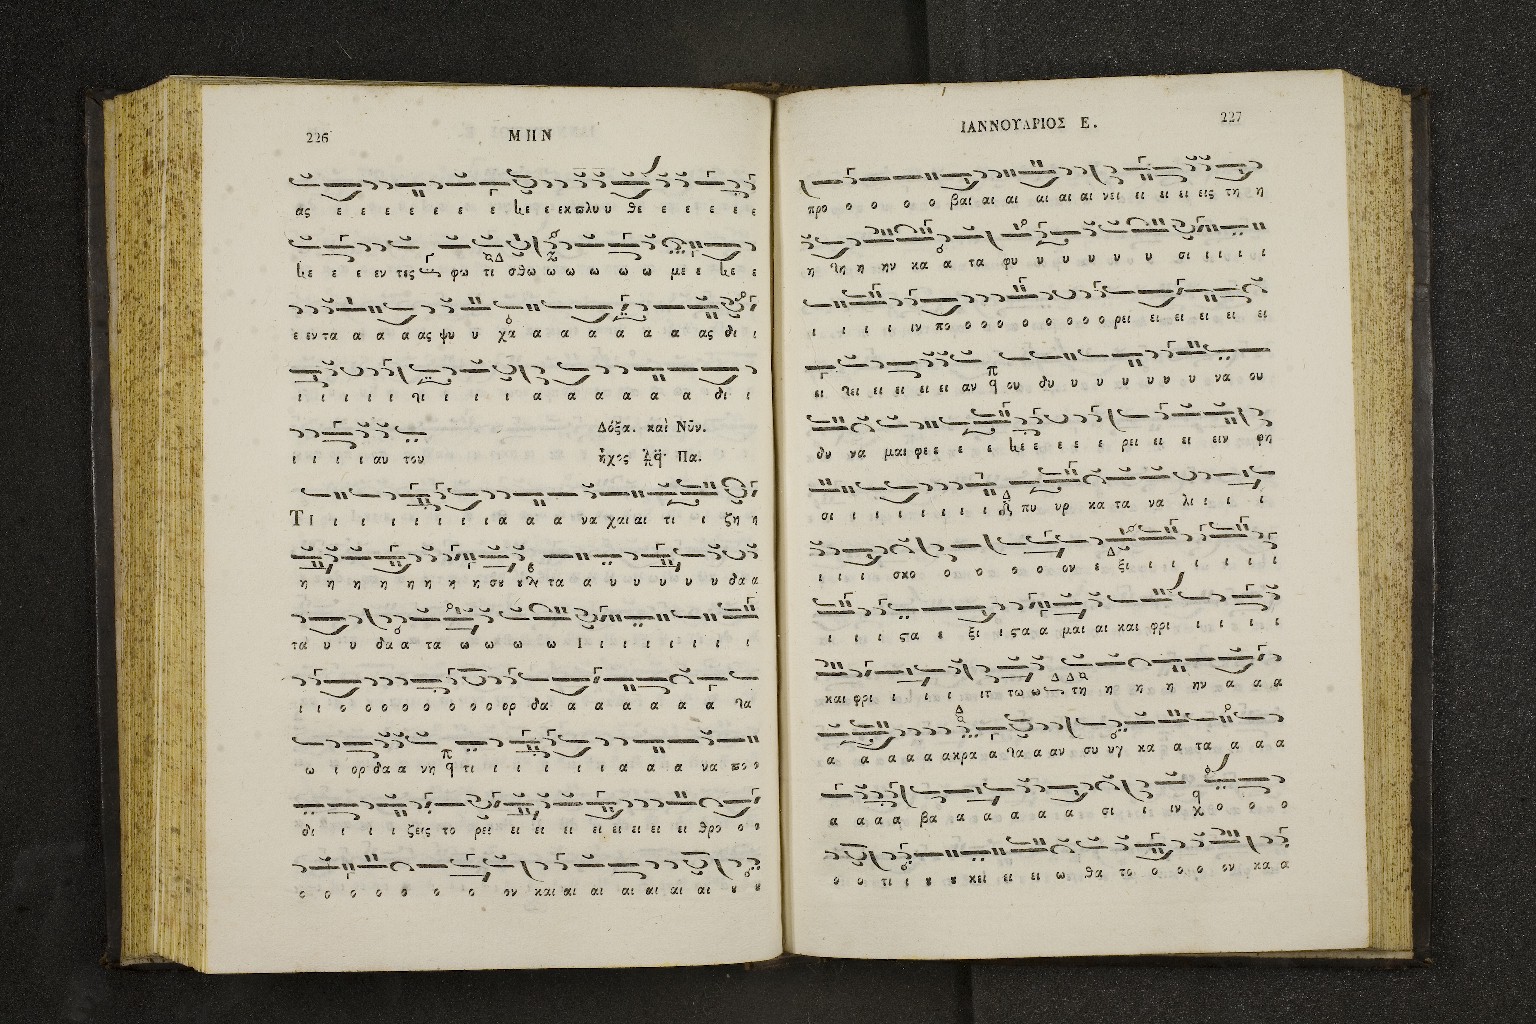 226
ΜΗΝ
ας ε ε ε ε ε ε ε ε ε εκπλυυ θε ε ε ε ε ε
ε ε ε εν τες φω τι σθω ω ω ω ω ω με ε ε ε
ε εν τα α α α ας ψυ υ χα α α α α α α ας δι ι
ι ι ι ι ι ι ι ι ι α α α α α α δι ι
Δόξα. καὶ Νῦν.
ι ι ι ι αυ του
ἦχος Πα.
Τι ι ι ι ι ι ι ι α α α να χαι αι τι ι ζη η
η η η η η η η η συ τα α υ υ υ υ υ δα α
τα υ υ δα α τα ω ω ω ω Ι ι ι ι ι ι ι
ι ι ο ο ο ο ο ο ο ορ δα α α α α α α
ω ι ορ δα α νη τι ι ι ι ι ι α α α να πο ο
δι ι ι ι ζεις το ρει ει ει ει ει ει ει ει ει θρο ο ο
ο ο ο ο ο ο ο ον και αι αι αι αι αι αι
ΙΑΝΝΟΥΑΡΙΟΣ Ε.
227
προ ο ο ο ο βαι αι αι αι αι αι νει ει ει ει ει εις τη η
η η ην κα α τα φυ υ υ υ υ υ σι ι ι ι
ι ι ι ι ιν πο ο ο ο ο ο ο ο ο ρει ει ει ει ει ει
ει ει ει ει ει ει αν ου δυ υ υ υ υ υ υ να ου
δυ να μαι φε ε ε ε ε ε ε ε ρει ει ει ειν φη
σι ι ι ι ι ι ι ι πυ υρ κα τα να λι ι ι ι
ι ι ι σκο ο ο ο ο ο ον ε ξι ι ι ι ι ι ι
ι ι ι ϛα ε ξι ι ϛα α μαι αι και φρι ι ι ι ι
και φρι ι ι ι ιτ τω ω τη η η η ην α α α
α α α α α ακρα α α αν συ υγ κα α τα α α α
α α α α βα α α α α α α σι ι ιν χ ο ο ο ο
ο ο τι ι κει ει ει ω θα το ο ο ο ον κα α